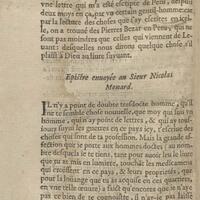 m'a esté escrite de Peru, depuis
deux moys en ça, par vn certain gentil-homme esmeu
par la lecture des choses que i'ay escrites en icel-
le, on a trouué des Pierres Bezar en Peru, qui ne
sont pas moindres que celles qui viennent de Le-
uant: desquelles nous dirons quelque chose, s'il
plaist à Dieu au liure suyuant.
Epistre enuoyée au Sieur Nicolas
Monard.
IL n'y a point de doubte tresdocte homme, qu'il
ne te semble chose nouuelle, que moy qui suis vn
homme, qui n'ay point de lettres, & qui ay tous-
iours suyui les guerres en ce pays icy, t'escriue des
choses qui sont de ta profession. Mais la grande af-
fection que ie porte aux hommes doctes, au nom-
bre desquels ie te tiens, tant pour auoir mis
en lumiere, touchant les medicamens qui
excroissent en ce pays, & leurs proprietez, que
pour la loüange que tu as acquise en ces quartiers,
en vne telle œuure) a faict qu'encores que ie n'aye
pas ce bien de te cognoistre, si n'ay-ie pas